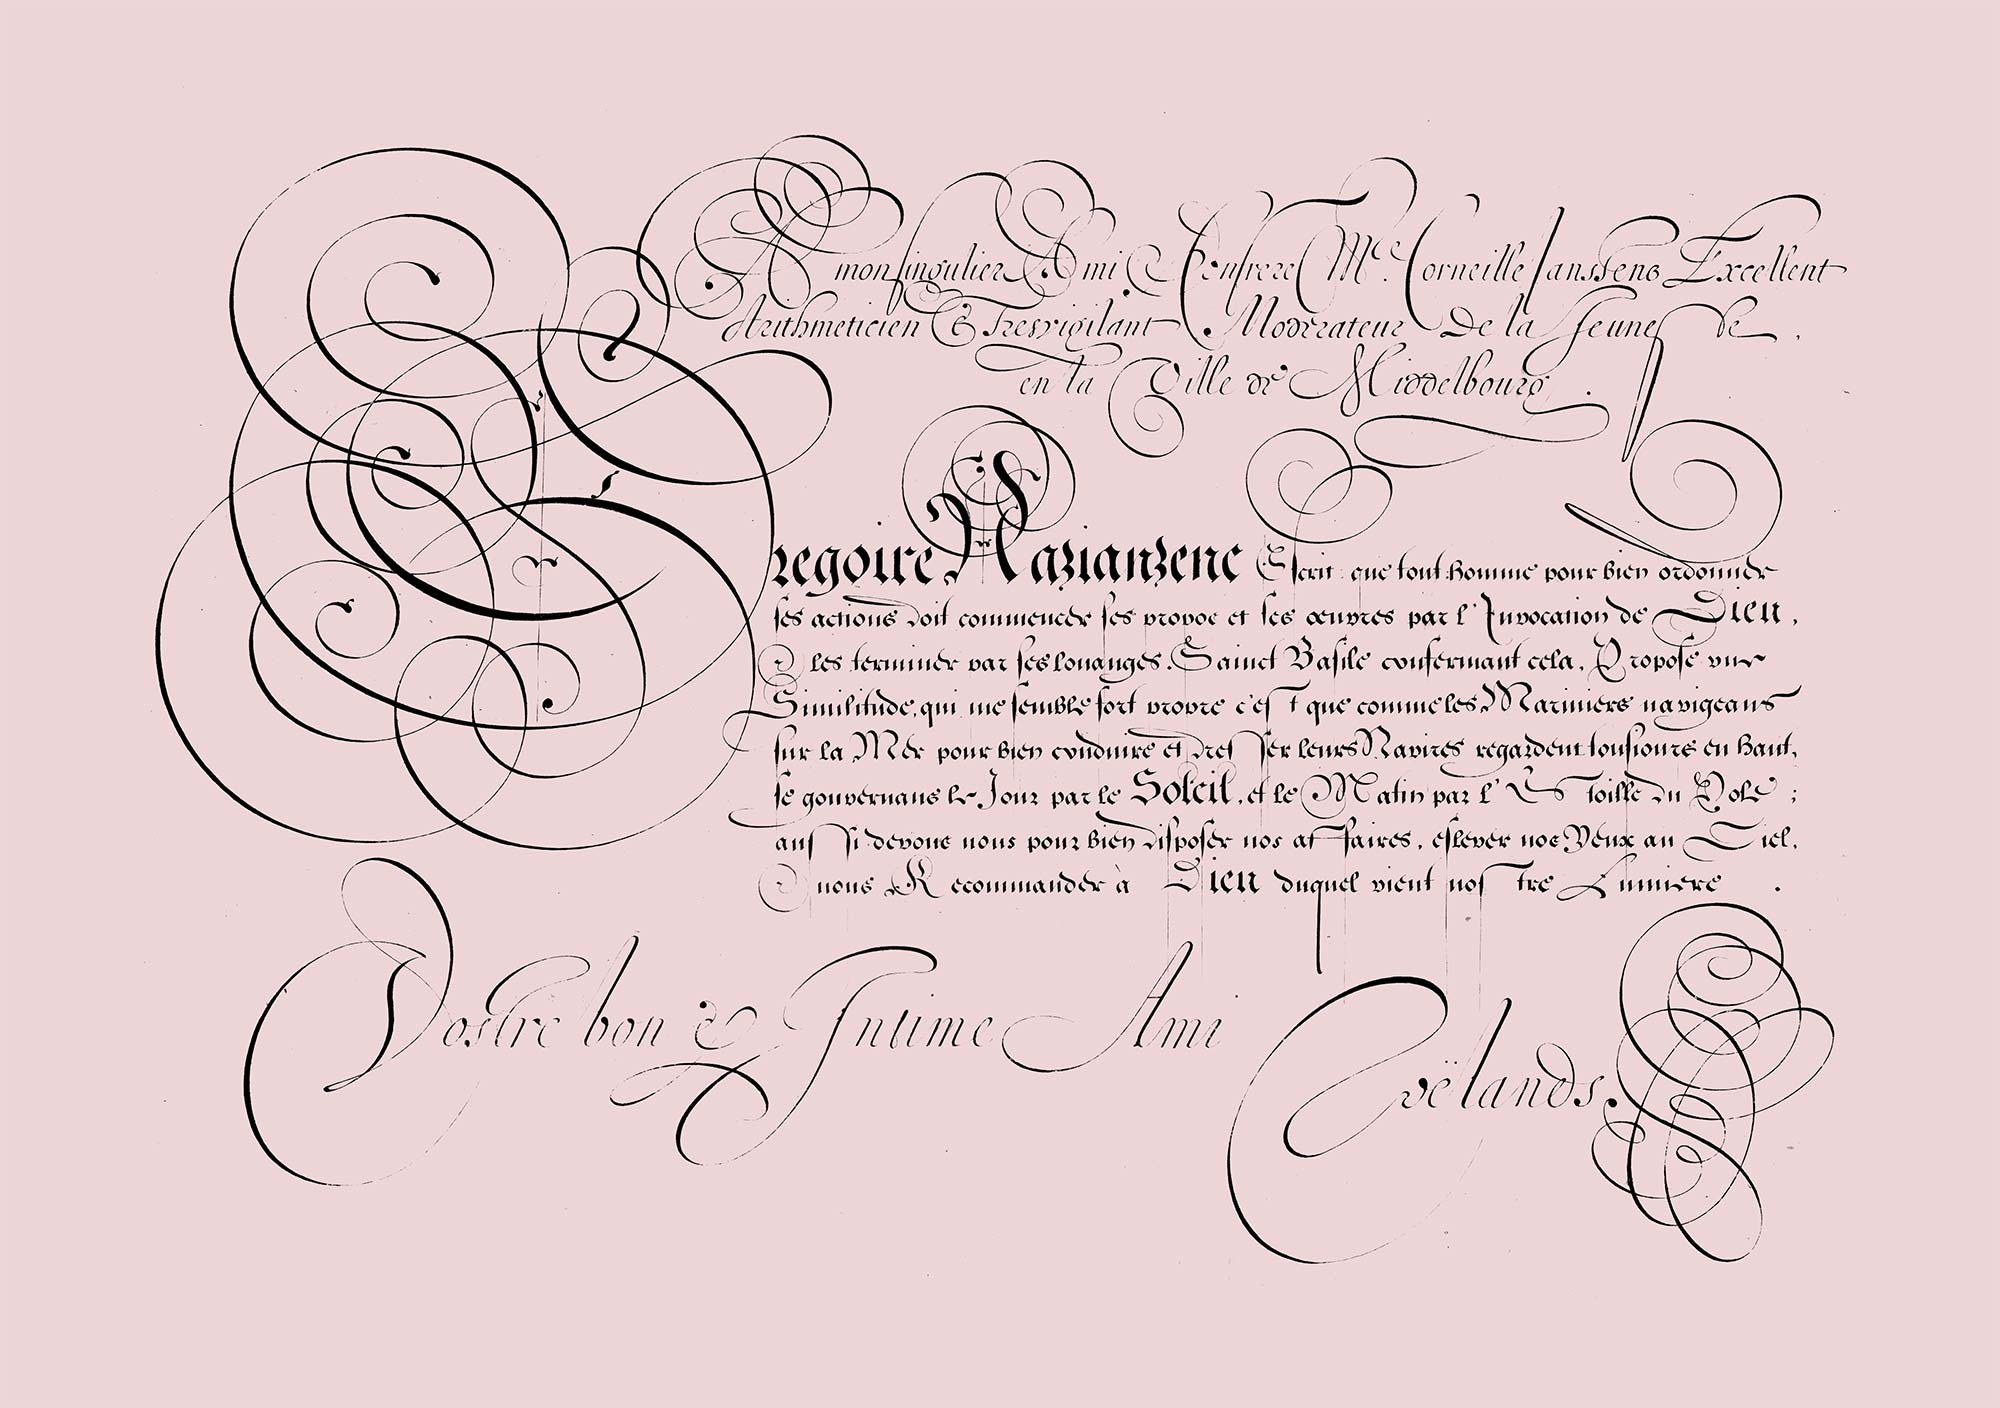 A mon singulier Ami & Confrere Mre. Corneille Janssens Excellent
Arithmeticien & Tresvigilant Moderateur De la Jeunesse de.
en la Ville de Middelbourg.
Gregoire Nazianzene Escrit que tout homme pour bien ordonner
ses actions doit commencer ses propos et ses œuvres par l'Invocation de Dieu,
& les terminer par ses louanges. Sainct Basile confermant cela, Propose une
Similitude, qui me semble fort propre c'est que comme les Mariniers navigeans
sur la Mer pour bien conduire et dresser leurs Navires regardent tousiours en haut,
se gouvernans le Jour par le Soleil, et le Matin par l'Estoille du Pole;
aussi devons nous pour bien disposer nos affaires, eslever nos Yeux au Ciel,
& nous Recommander à Dieu duquel vient nostre Lumiere.
Vostre bon & Intime Ami